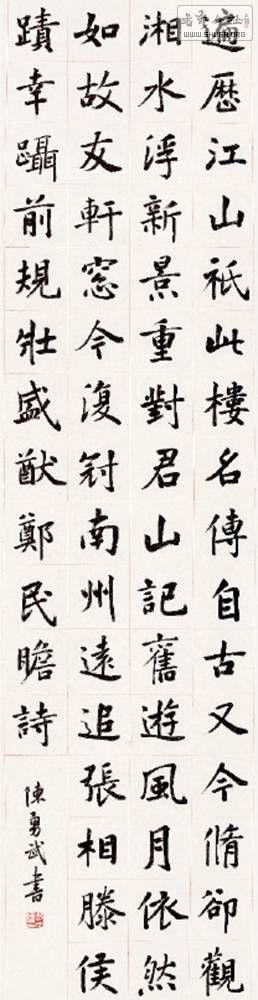 遍歷江山祇此樓名傳自古又今脩卻觀
湘水浮新景重對君山記舊遊風月依然
如故友軒窓今復冠南州遠追張相滕侯
蹟幸躡前規壯盛猷鄭民瞻詩
陳勇武書
www.shufa.org